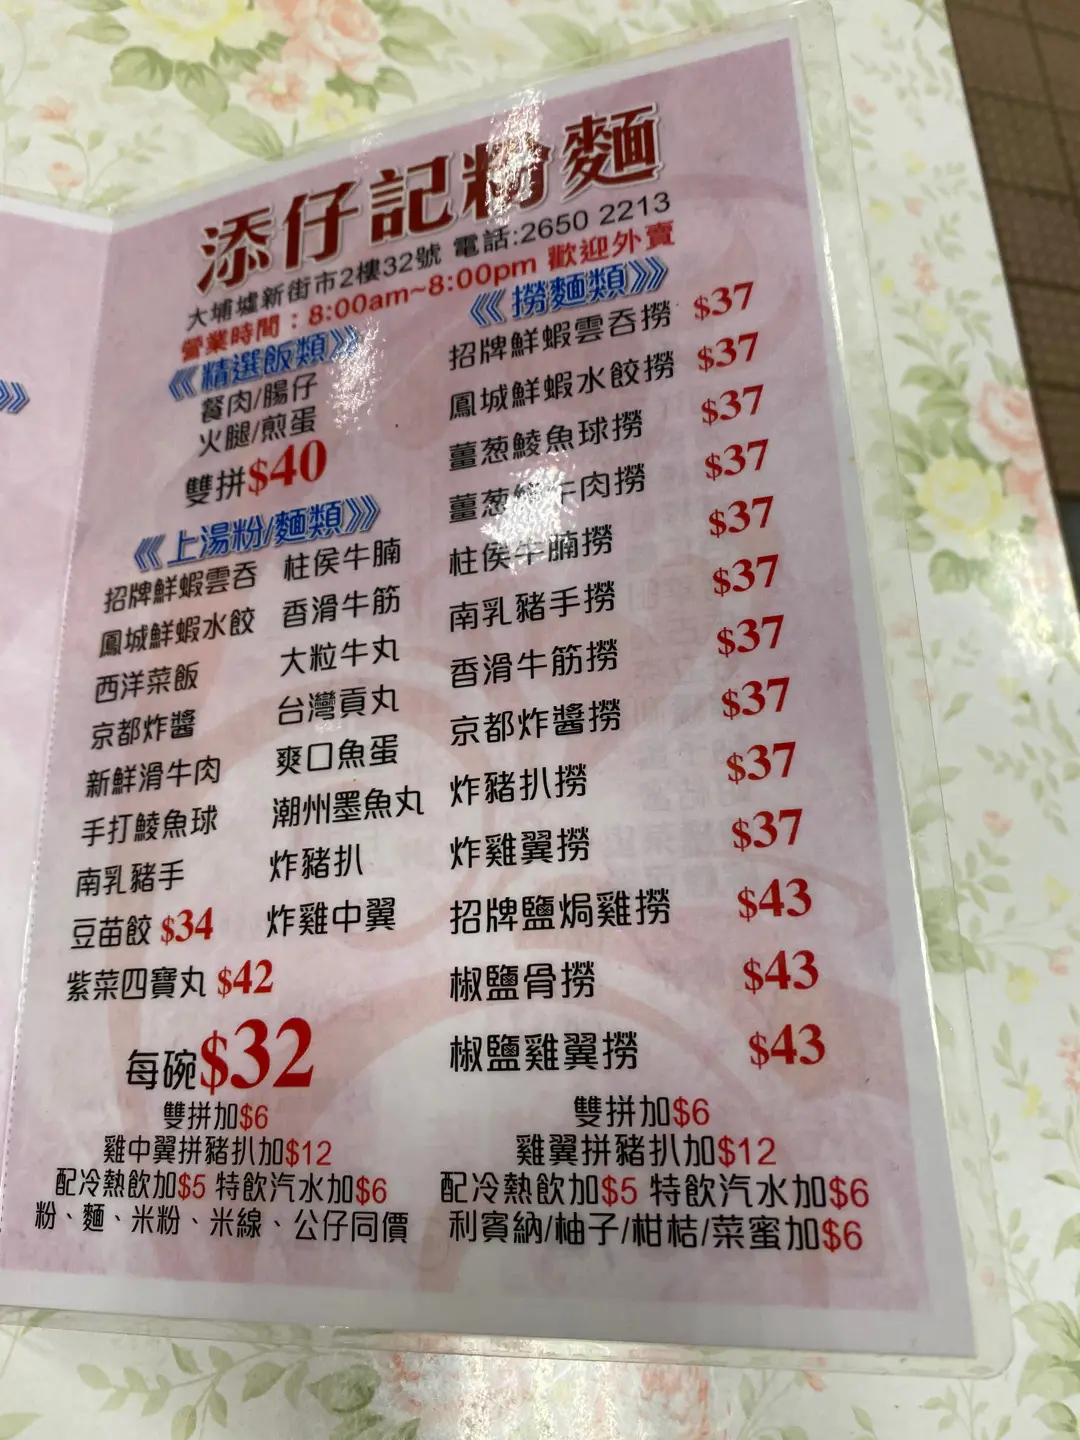 添仔記粉麵
大埔墟新街市2樓32號 電話:2650 2213
營業時間：8:00am~8:00pm 歡迎外賣
《精選飯類》
餐肉/腸仔
火腿/煎蛋
雙拼$40
《上湯粉/麵類》
招牌鮮蝦雲吞 柱侯牛腩
鳳城鮮蝦水餃 香滑牛筋
西洋菜飯 大粒牛丸
京都炸醬 台灣貢丸
新鮮滑牛肉 爽口魚蛋
手打鯪魚球 潮州墨魚丸
南乳豬手 炸豬扒
豆苗餃 $34 炸雞中翼
紫菜四寶丸 $42
每碗$32
雙拼加$6
雞中翼拼豬扒加$12
配冷熱飲加$5 特飲汽水加$6
粉、麵、米粉、米線、公仔同價
《撈麵類》
招牌鮮蝦雲吞撈 $37
鳳城鮮蝦水餃撈 $37
薑葱鯪魚球撈 $37
薑葱牛肉撈 $37
柱侯牛腩撈 $37
南乳豬手撈 $37
香滑牛筋撈 $37
京都炸醬撈 $37
炸豬扒撈 $37
炸雞翼撈 $37
招牌鹽焗雞撈 $43
椒鹽骨撈 $43
椒鹽雞翼撈 $43
雙拼加$6
雞翼拼豬扒加$12
配冷熱飲加$5 特飲汽水加$6
利賓納/柚子/柑桔/菜蜜加$6
》